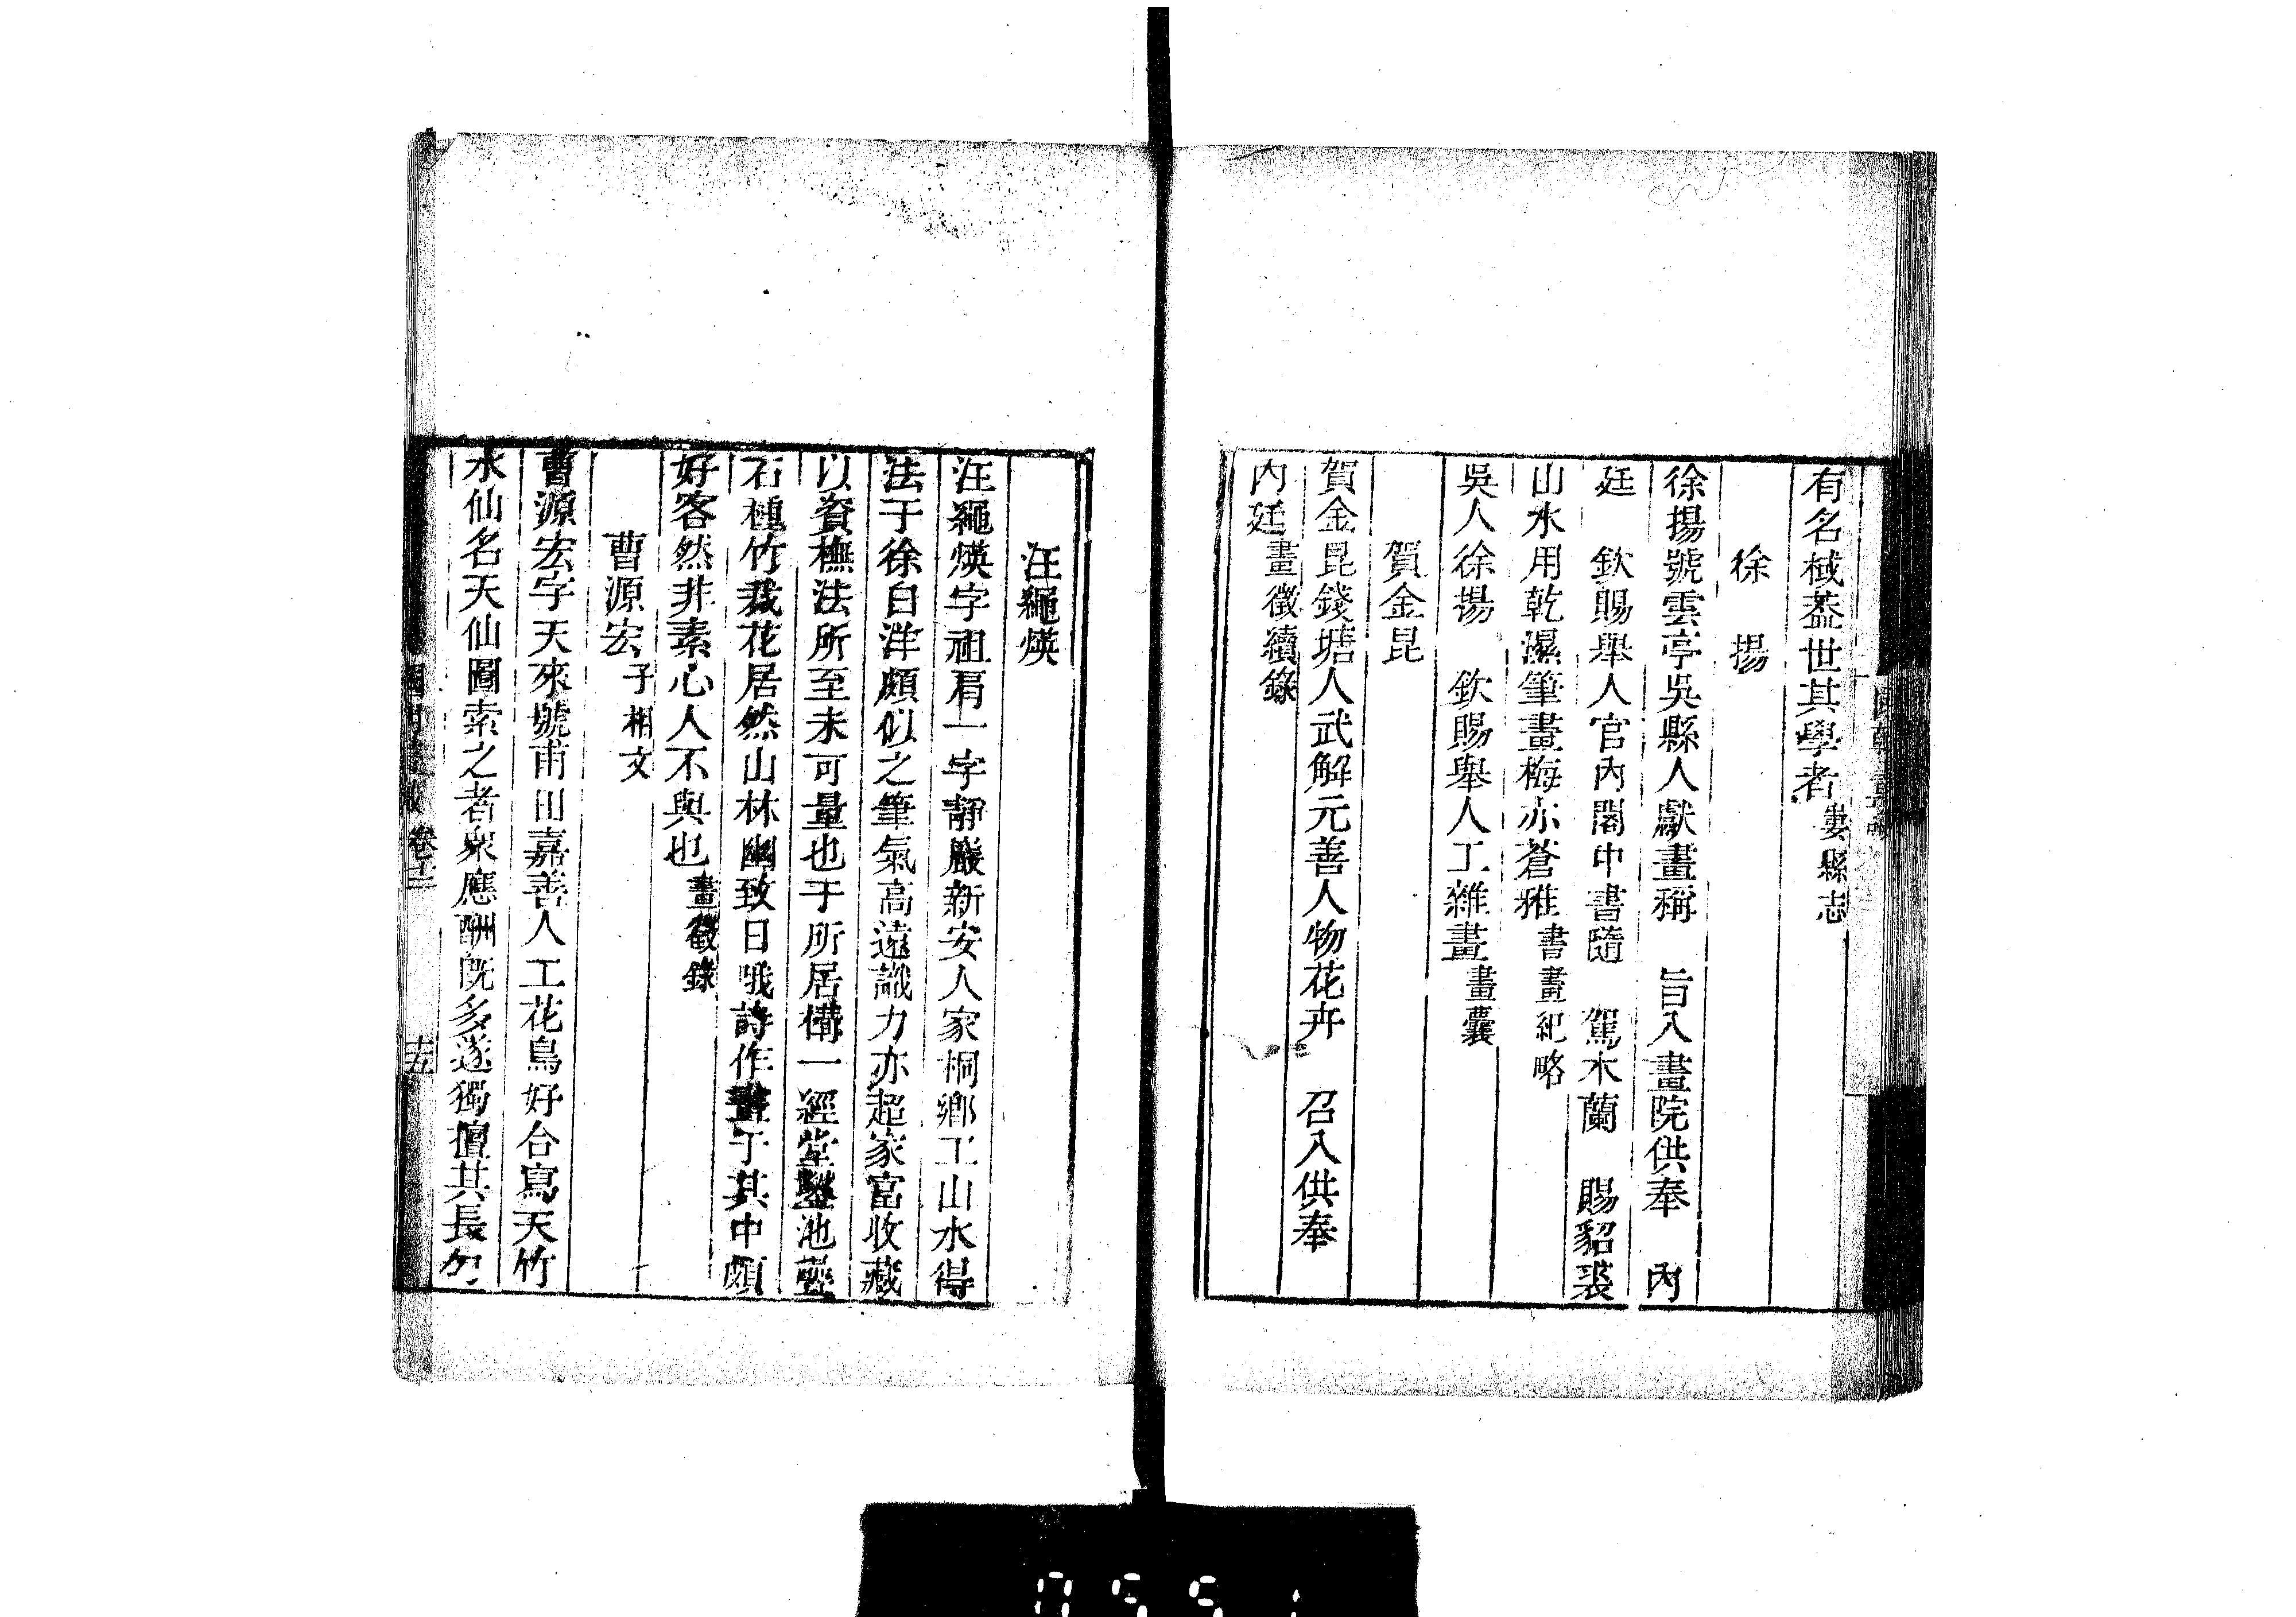 有名棫葢世其學者婁縣志
徐揚
徐揚號雲亭吳縣人獻畫稱　旨入畫院供奉　內
廷　欽賜舉人官內閣中書隨　駕木蘭　賜貂裘
山水用乾濕筆畫梅亦蒼雅書畫紀略
吳人徐揚　欽賜舉人工雜畫畫囊
賀金昆
賀金昆錢塘人武解元善人物花卉　召入供奉
內廷畫徵續錄
汪繩煐
汪繩煐字祖肩一字靜巖新安人家桐鄉工山水得
法于徐白洋頗似之筆氣高遠識力亦超家富收藏
以資橅法所至未可量也于所居構一經堂鑿池壘
石種竹栽花居然山林幽致日哦詩作畫于其中頗
好客然非素心人不與也畫徵錄
曹源宏子相文
曹源宏字天來號甫田嘉善人工花鳥好合寫天竹
水仙名天仙圖索之者衆應酬旣多遂獨擅其長勾
卷十三
十五
0551